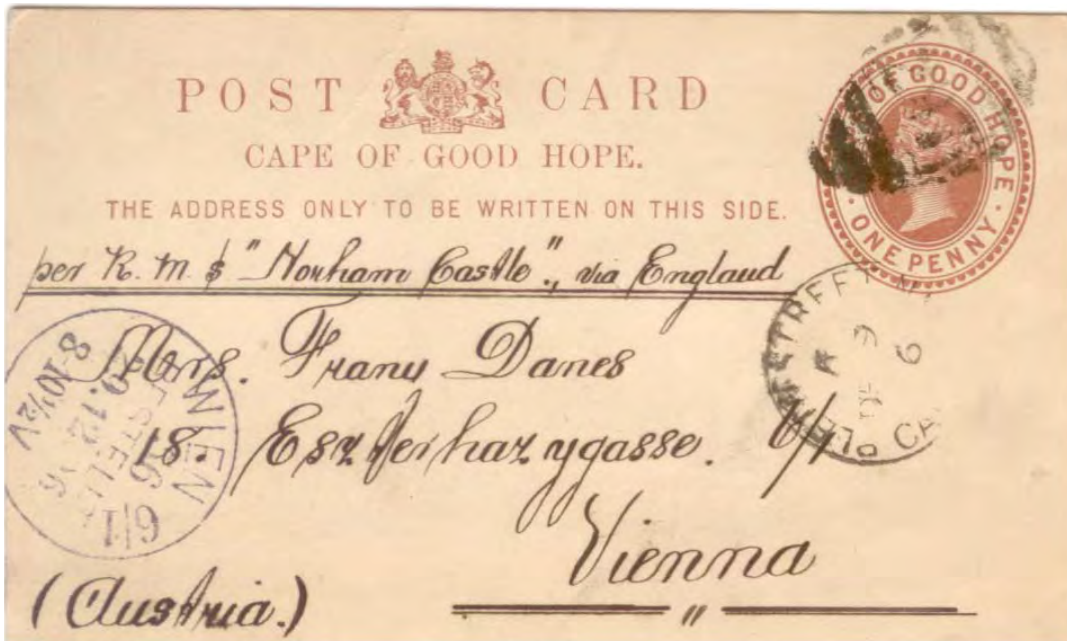 POST CARD
CAPE OF GOOD HOPE.
THE ADDRESS ONLY TO BE WRITTEN ON THIS SIDE.
OF GOOD HOPE · ONE PENNY ·
per R. M. S "Norham Castle", via England
Mrs. Franz Danes
18. Eszterhazygasse. 6/1
Vienna
(Austria.)
WIEN 6/1
BESTELLT
9.12.96
8-10½V
STREET
9
6
CA